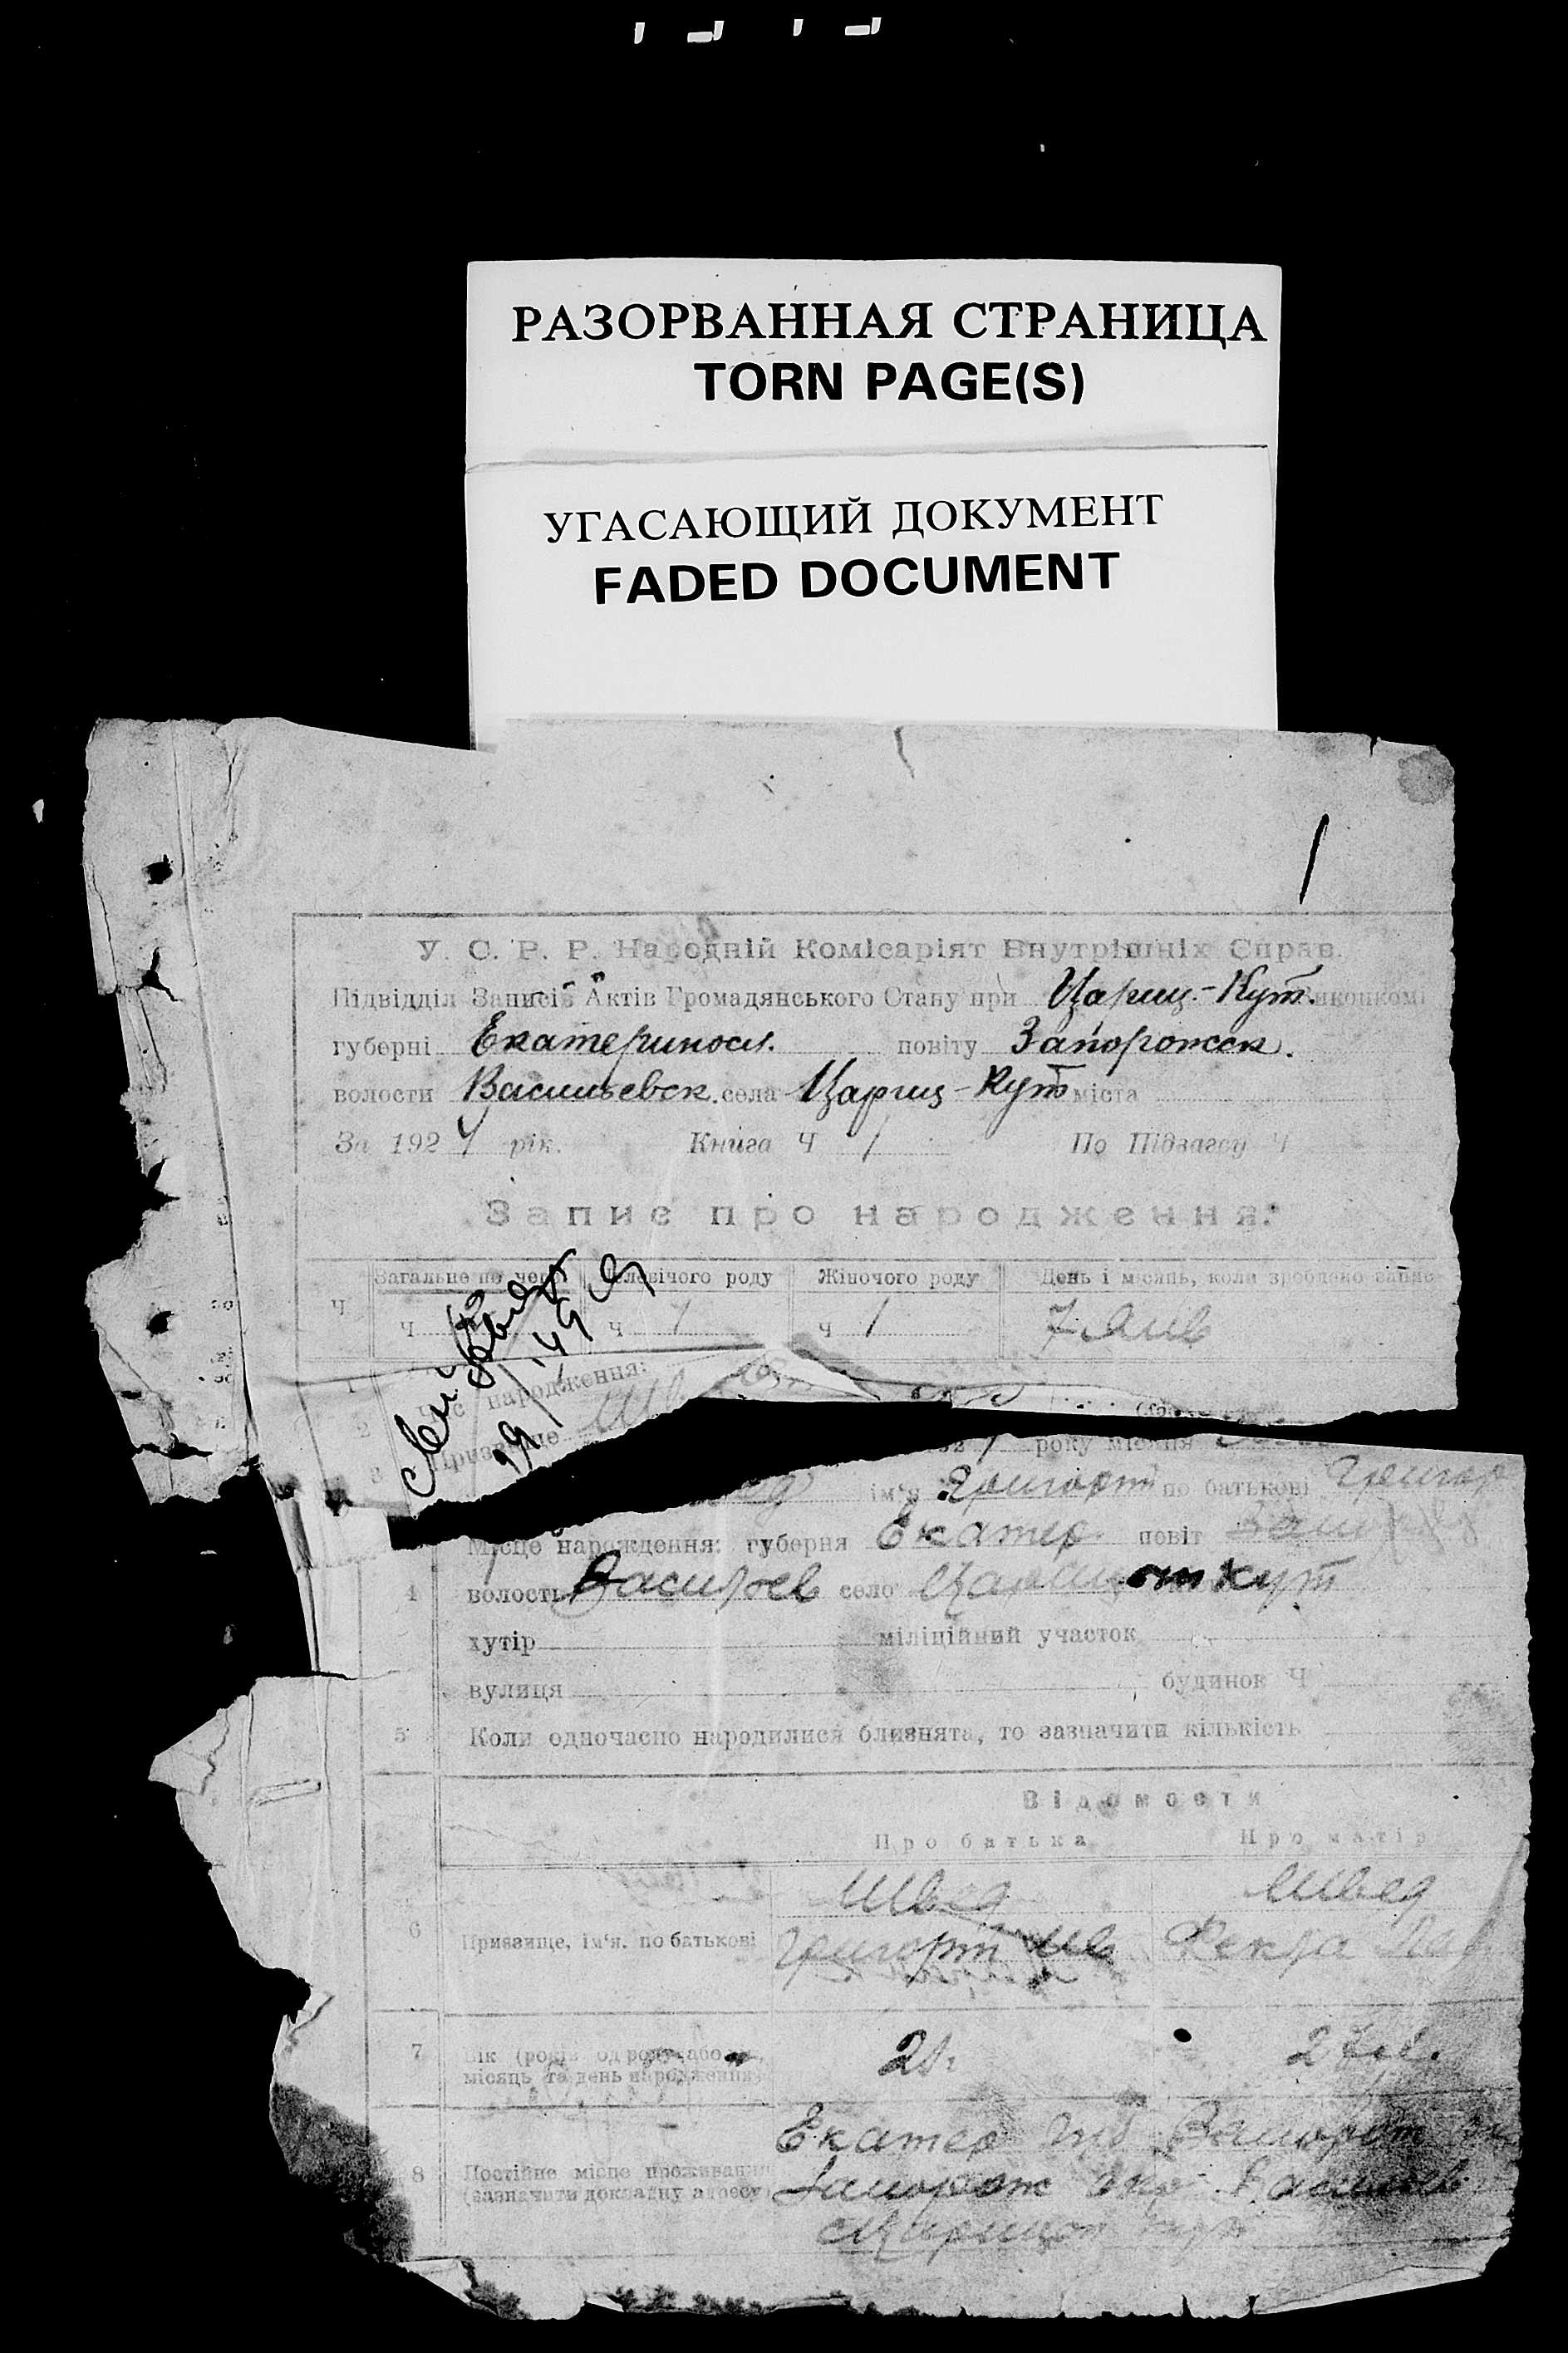 РАЗОРВАННАЯ СТРАНИЦА
TORN PAGE(S)
УГАСАЮЩИЙ ДОКУМЕНТ
FADED DOCUMENT
1
У. С. Р. Р. Народній Комісаріят Внутрішніх Справ.
Підвідділ Записів Актів Громадянського Стану при Цариц.-Кут.
губерні Екатериносл. повіту Запорожск.
волости Васильевск. села Цариц-Кут міста
За 1924 рік. Книга Ч 1 По Підзагсу Ч
Запис про народження:
Ч Загальне по Чоловічого роду Жіночого роду День і місяць, коли зроблено запис
Ч ч 1 ч 1 7 Янв
1
2 народження:
3 Призвище
року місяця
ім'я Григорий по батькові Григор
Місце народження: губерня Екатер. повіт
4 волость Васильев село Царицын кут
хутір міліційний участок
вулиця будинок Ч
5 Коли одночасно народилися близнята, то зазначити кількість
Відомости
Про батька Про матір
Швед Швед
6 Призвище, ім'я, по батькові Григорий Ив Фекла
7 Вік (років од роду або
місяць та день народження) 21. 27 л.
Екатер губ Запорож
8 Постійне місце проживання
(зазначити докладну адресу) Запорож окр Васильев